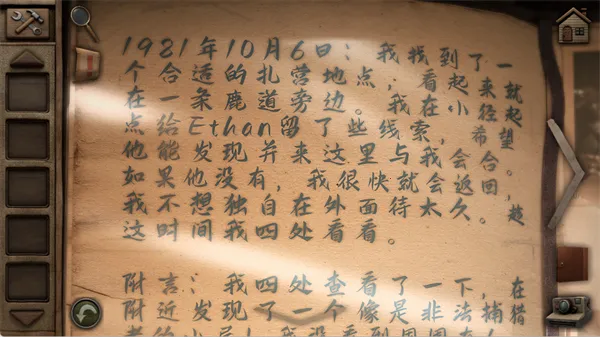 1981年10月6日：我找到了一
个合适的扎营地点；看起来就
在一条鹿道旁边。我在小径起
点给Ethan留了些线索，希望
他能发现并来这里与我会合。
如果他没有，我很快就会返回，
我不想独自在外面待太久。趁
这时间我四处看看。
附言：我四处查看了一下，在
附近发现了一个像是非法捕猎
者的小屋！我没看到周围有人